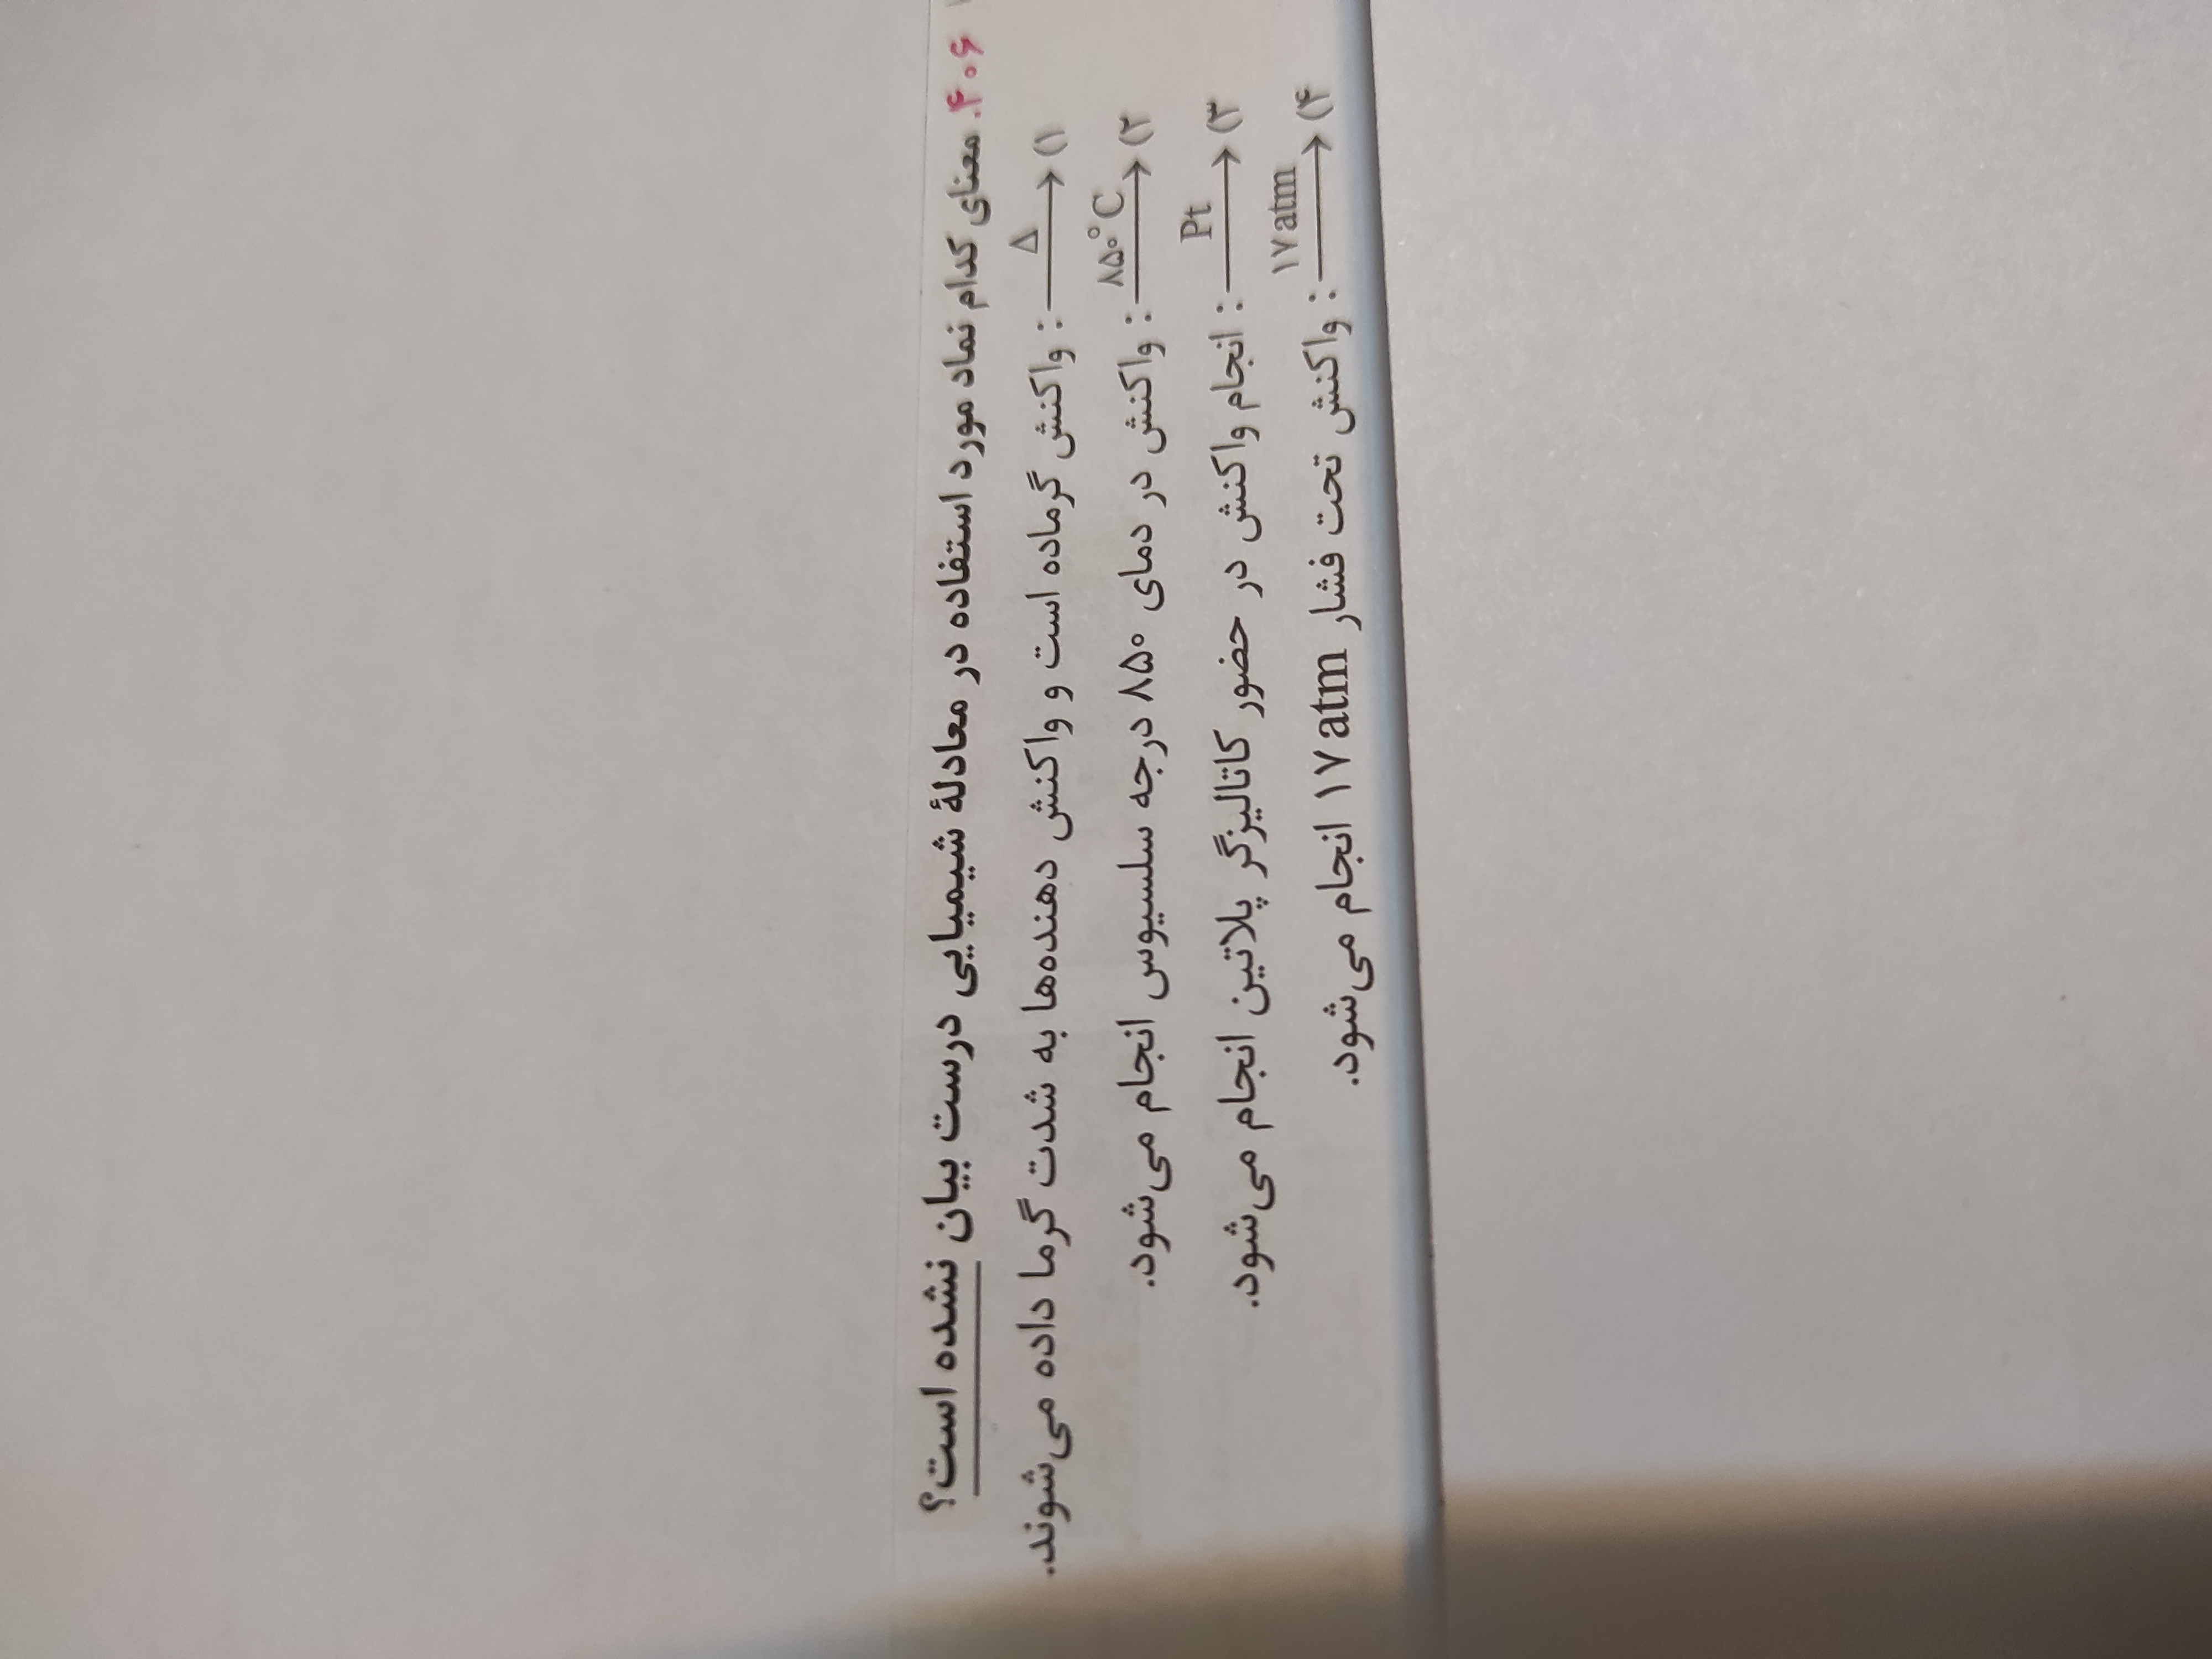 ۴۰۶. معنای کدام نماد مورد استفاده در معادلهٔ شیمیایی درست بیان نشده است؟
۱) Δ⟶ : واکنش گرماده است و واکنش دهنده‌ها به شدت گرما داده می‌شوند.
۲) ۸۵۰°C⟶ : واکنش در دمای ۸۵۰ درجه سلسیوس انجام می‌شود.
۳) Pt⟶ : انجام واکنش در حضور کاتالیزگر پلاتین انجام می‌شود.
۴) ۱۷atm⟶ : واکنش تحت فشار ۱۷atm انجام می‌شود.